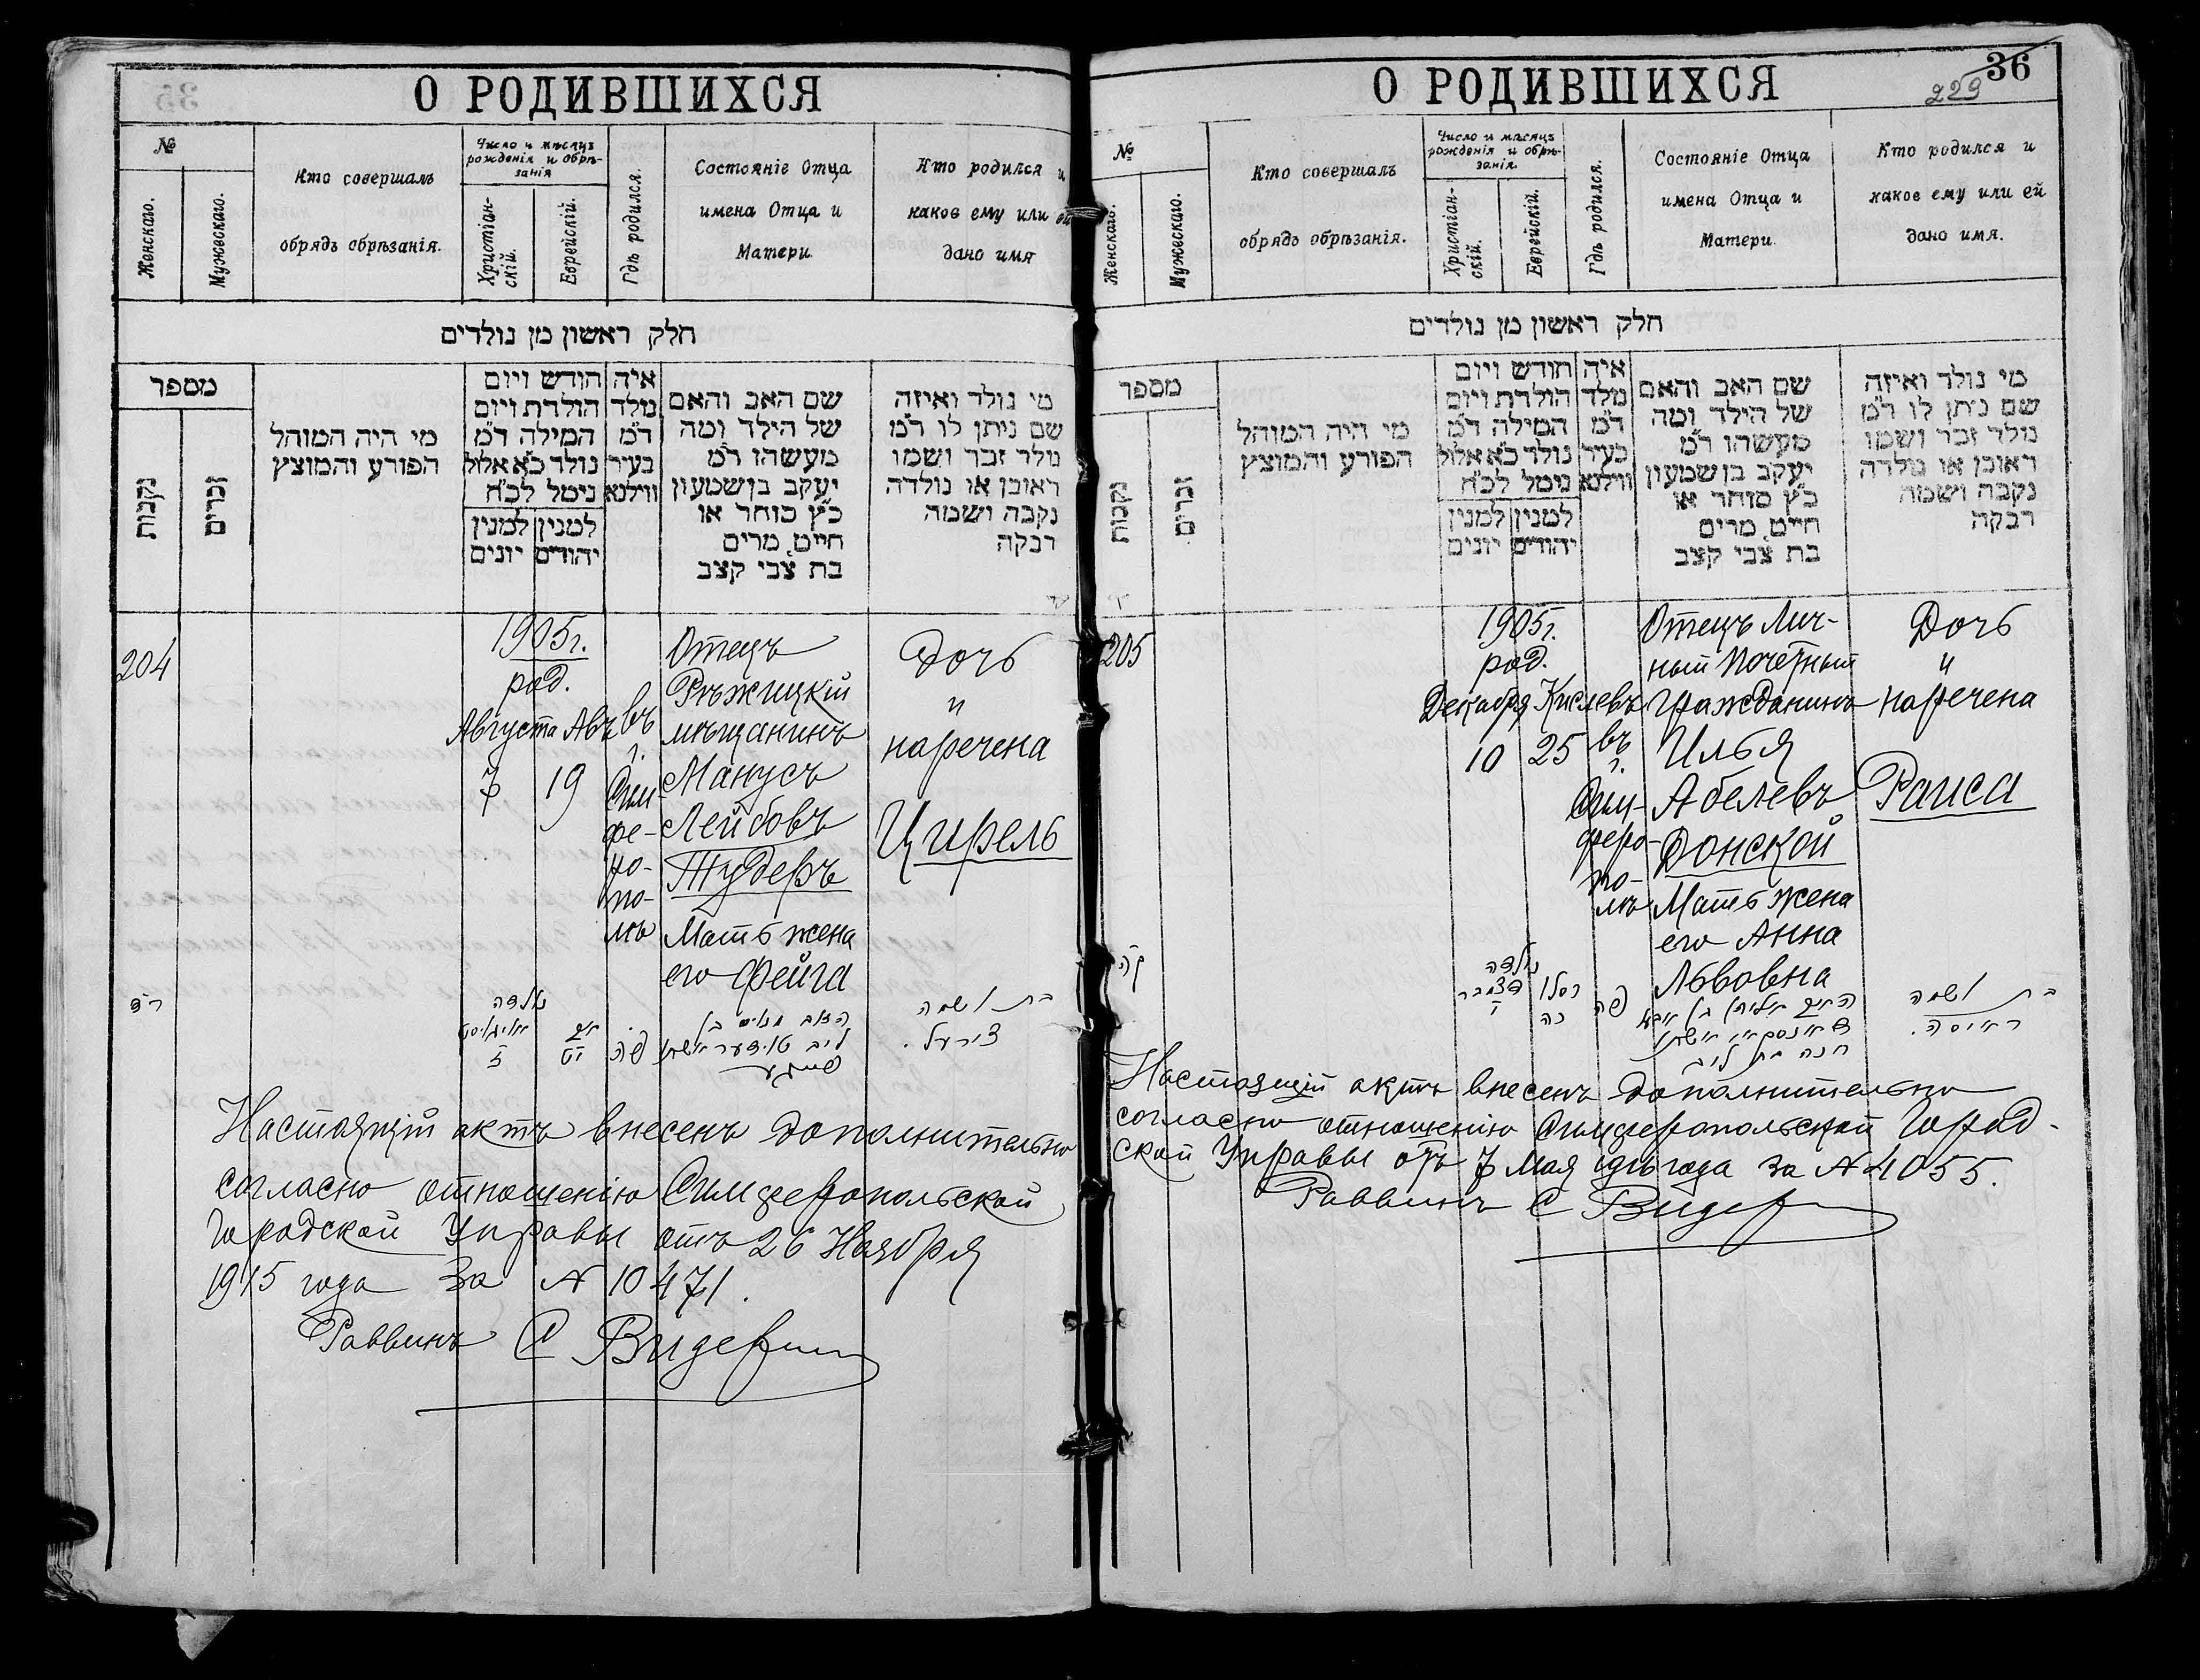 О РОДИВШИХСЯ
№
Женскаго.
Мужескаго.
Кто совершалъ
обрядъ обрѣзанія.
Число и мѣсяцъ
рожденія и обрѣ-
занія
Христіан-
скій.
Еврейскій.
Гдѣ родился.
Состояніе Отца
имена Отца и
Матери.
Кто родился и
какое ему или ей
дано имя
חלק ראשון מן נולדים
מספר
נקבות
זכרים
מי היה המוהל
הפורע והמוצץ
חודש ויום
הולדת ויום
המילה ד״מ
נולד כ״א אלול
נימל לכ״ח
למנין
יהודים
למנין
יונים
איה
נולד
ד״מ
בעיר
ווילנא
שם האב והאם
של הילד ומה
מעשהו ד״מ
יעקב בן שמעון
כ״ץ סוחר או
חייט מרים
בת צבי קצב
מי נולד ואיזה
שם ניתן לו ד״מ
נולד זכר ושמו
ראובן או נולדה
נקבה ושמה
רבקה
204
1905 г.
род.
Августа Авъ
7 19
въ
г.
Сим-
фе-
ро-
по-
лѣ
Отецъ
Рѣжицкій
мѣщанинъ
Манусъ
Лейбовъ
Тудеръ
Мать жена
его Фейга
Дочь
и
наречена
Цирель
ר״ד
נולדה
אויגוסט
ז
אב
יט
פה
האב מאניס בן
ליב טודער ואשתו
פייגע
בת ושמה
צירעל.
Настоящій актъ внесенъ дополнительно
согласно отношенію Симферопольской
Городской Управы отъ 26 Ноября
1915 года за № 10471.
Раввинъ С Видер
О РОДИВШИХСЯ
36
229
№
Женскаго.
Мужескаго.
Кто совершалъ
обрядъ обрѣзанія.
Число и мѣсяцъ
рожденія и обрѣ-
занія.
Христіан-
скій.
Еврейскій.
Гдѣ родился.
Состояніе Отца
имена Отца и
Матери.
Кто родился и
какое ему или ей
дано имя.
חלק ראשון מן נולדים
מספר
נקבות
זכרים
מי היה המוהל
הפורע והמוצץ
חודש ויום
הולדת ויום
המילה ד״מ
נולד כ״א אלול
נימל לכ״ח
למנין
יהודים
למנין
יונים
איה
נולד
ד״מ
בעיר
ווילנא
שם האב והאם
של הילד ומה
מעשהו ד״מ
יעקב בן שמעון
כ״ץ סוחר או
חייט מרים
בת צבי קצב
מי נולד ואיזה
שם ניתן לו ד״מ
נולד זכר ושמו
ראובן או נולדה
נקבה ושמה
רבקה
205
1905 г.
род.
Декабря Кислевъ
10 25
въ
г.
Сим-
феро-
по-
лѣ
Отецъ Лич-
ный Почетный
Гражданинъ
Илья
Абелевъ
Донской
Мать жена
его Анна
Львовна
Дочь
и
наречена
Раиса
נולדה
דצמבר
י
כסלו
כה
פה
ואשתו
חנה בת ליב
בת ושמה
ראיסה.
Настоящій актъ внесенъ дополнительно
согласно отношенію Симферопольской Город-
ской Управы отъ 7 Мая 1916 года за № 4055.
Раввинъ С Видер